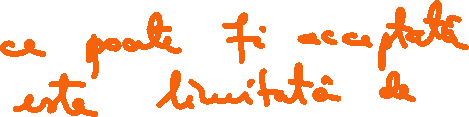 ce poate fi acceptată
este limitată de